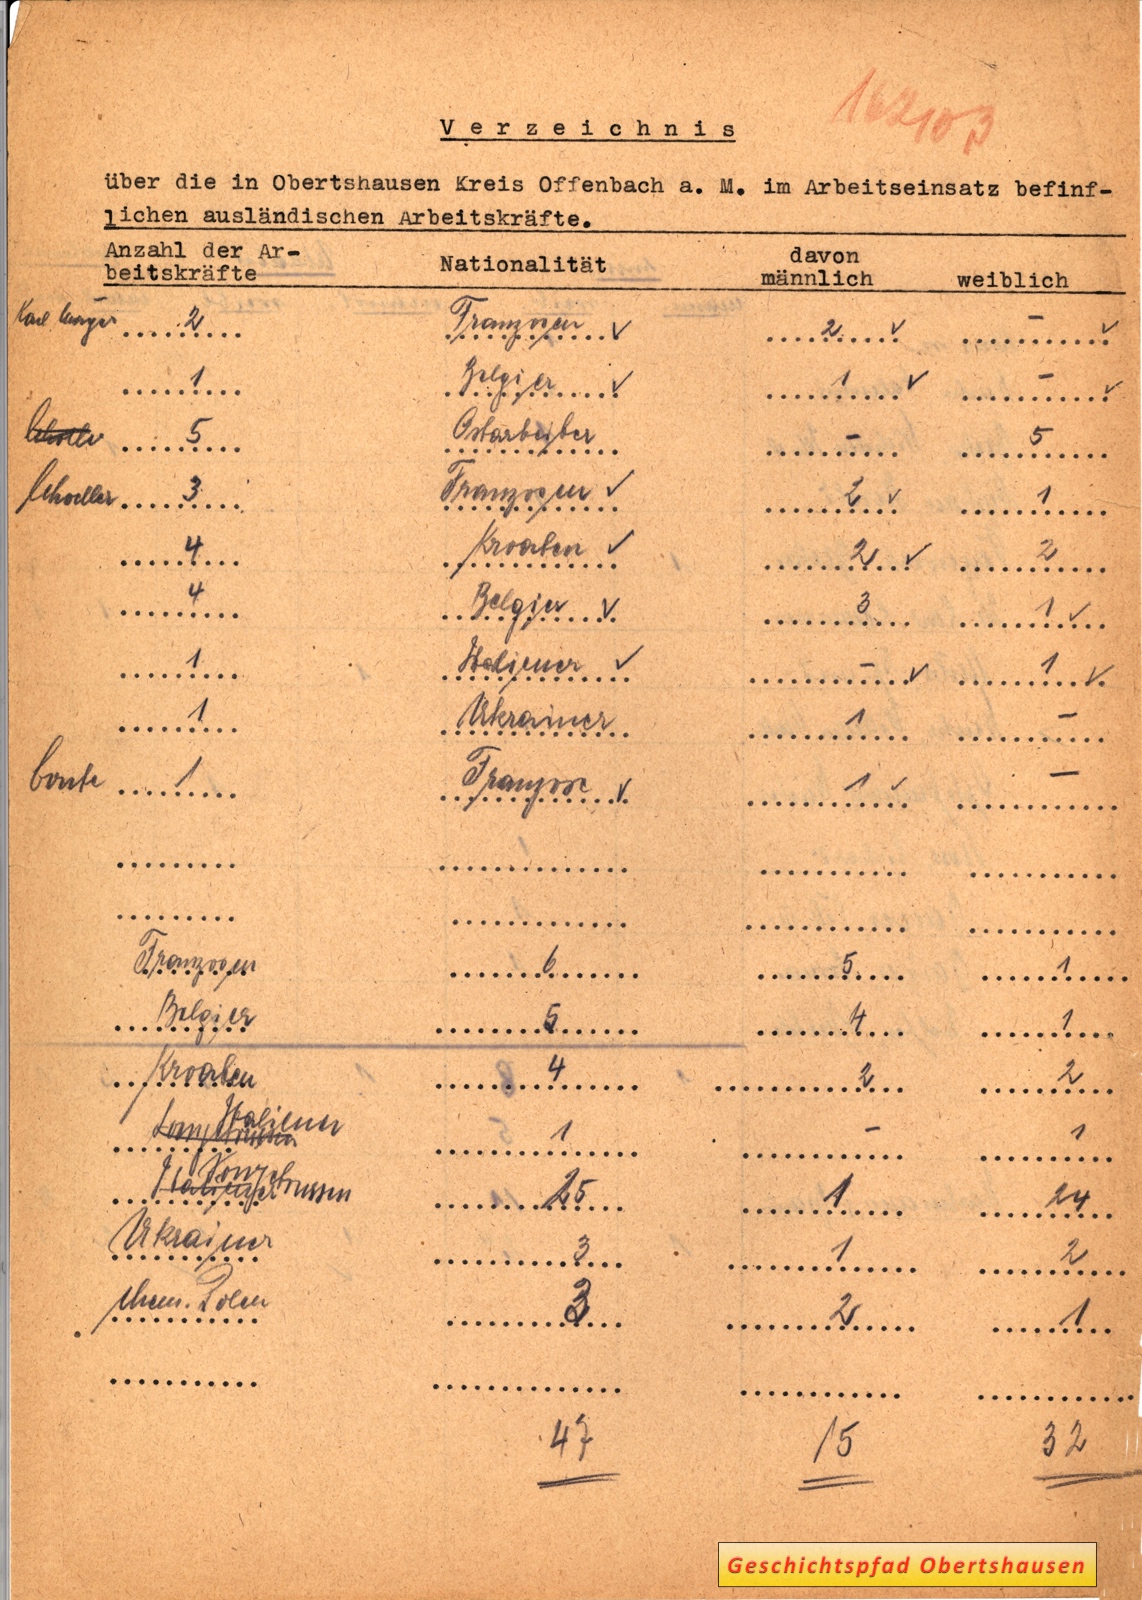 162103
Verzeichnis
über die in Obertshausen Kreis Offenbach a. M. im Arbeitseinsatz befinf-
lichen ausländischen Arbeitskräfte.
Anzahl der Ar-
beitskräfte Nationalität davon
männlich weiblich
Karl Mayer 2 Franzosen ✓ 2 ✓ – ✓
1 Belgier ✓ 1 ✓ – ✓
5 Ostarbeiter – 5
Schoeller 3 Franzosen ✓ 2 ✓ 1
4 Kroaten ✓ 2 ✓ 2
4 Belgier ✓ 3 1 ✓
1 Italiener ✓ – ✓ 1 ✓
1 Ukrainer 1 –
1 Franzose ✓ 1 ✓ –
Franzosen 6 5 1
Belgier 5 4 1
Kroaten 4 2 2
Italiener 1 – 1
Sowjetrussen 25 1 24
Ukrainer 3 1 2
ehem. Polen 3 2 1
47 15 32
Geschichtspfad Obertshausen